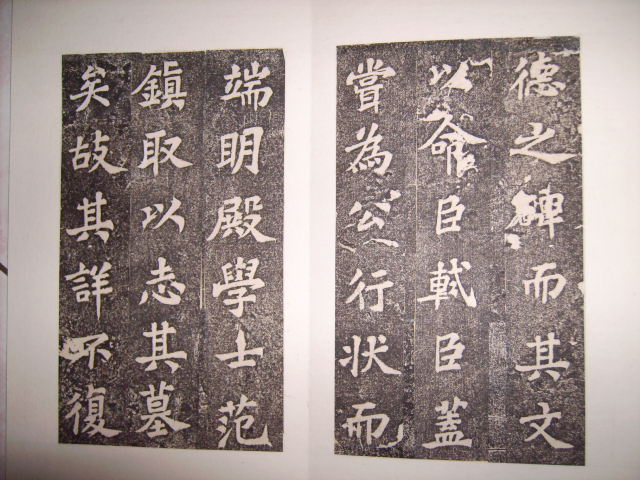 德之碑而其文
以命臣軾臣蓋
嘗為公行状而
端明殿學士范
鎮取以志其墓
矣故其詳不復